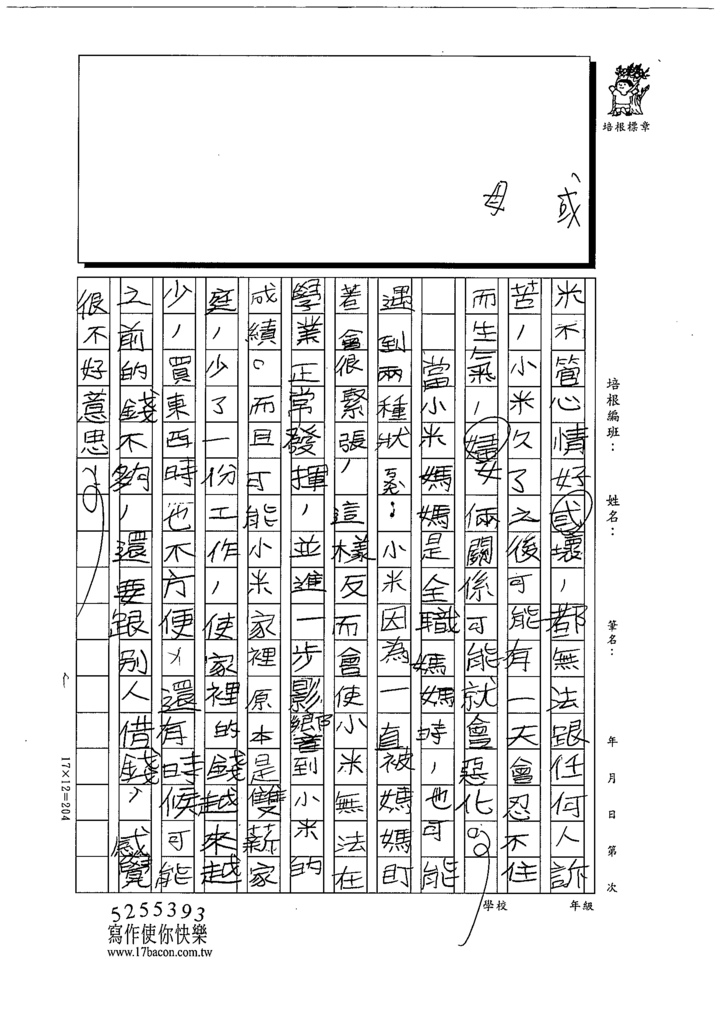 培根標章
或
母
培根編班：
姓名：
筆名：
年 月 日 第 次
學校
年級
米不管心情好惑壞，都無法跟任何人訴
苦，小米久了之後可能有一天會忍不住
而生氣，女倆關係可能就會惡化。
當小米媽媽是全職媽媽時，也可能
遇到兩種狀況：小米因為一直被媽媽盯
著會很緊張，這樣反而會使小米無法在
學業正常發揮，並進一步影響到小米的
成績。而且可能小米家裡原本是雙薪家
庭，少了一份工作，使家裡的錢越來越
少，買東西時也不方便，還有時候可能
之前的錢不夠，還要跟別人借錢，感覺
很不好意思。
17×12=204
5255393
寫作使你快樂
www.17bacon.com.tw